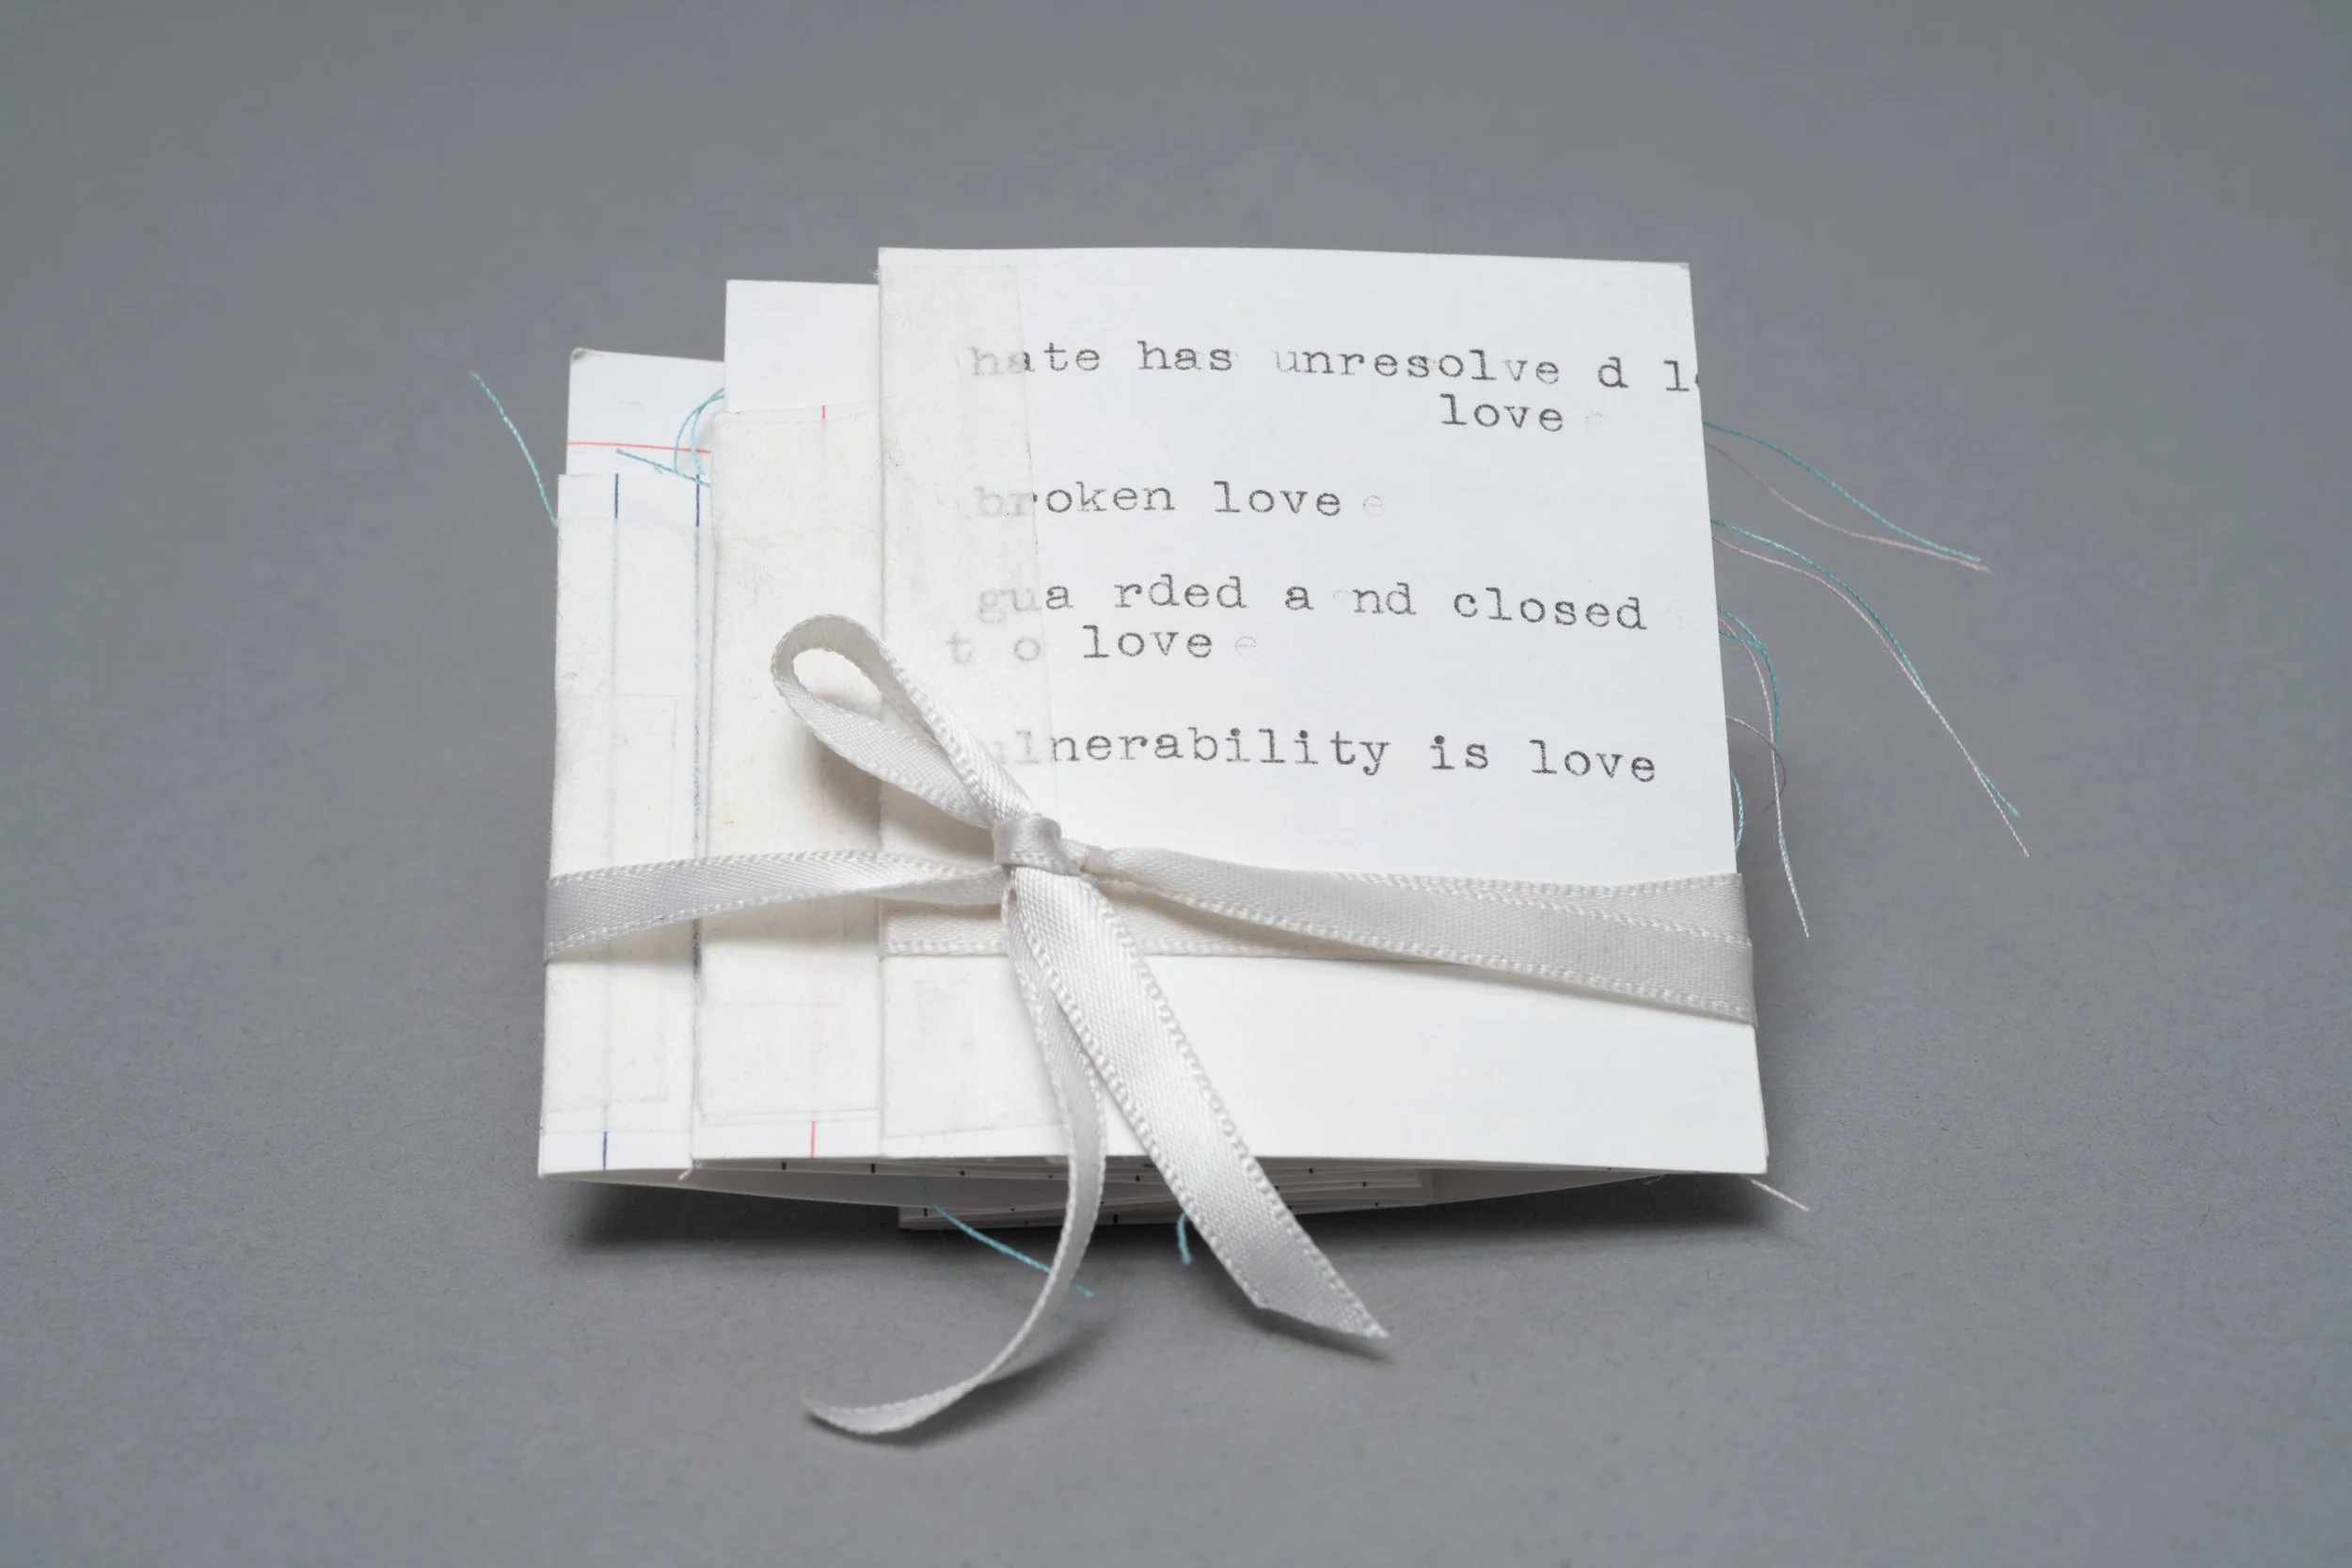 hate has unresolve d lo
love e
broken love e
gua rded a nd closed
t o love e
ulnerability is love